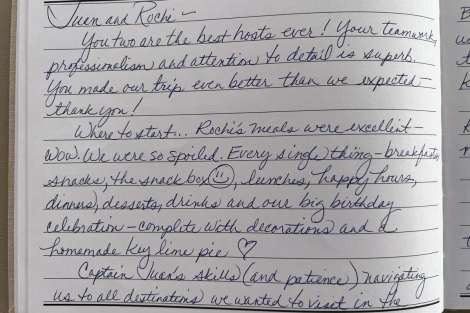 Juan and Rochi –
You two are the best hosts ever! Your teamwork,
professionalism and attention to detail is superb.
You made our trip even better than we expected –
thank you!
Where to start... Rochi's meals were excellent –
wow. We were so spoiled. Every single thing – breakfasts,
snacks, the snack box ☺, lunches, happy hours,
dinners, desserts, drinks and our big birthday
celebration – complete with decorations and a
homemade key lime pie ♡
Captain Juan's skills (and patience) navigating
us to all destinations we wanted to visit in the